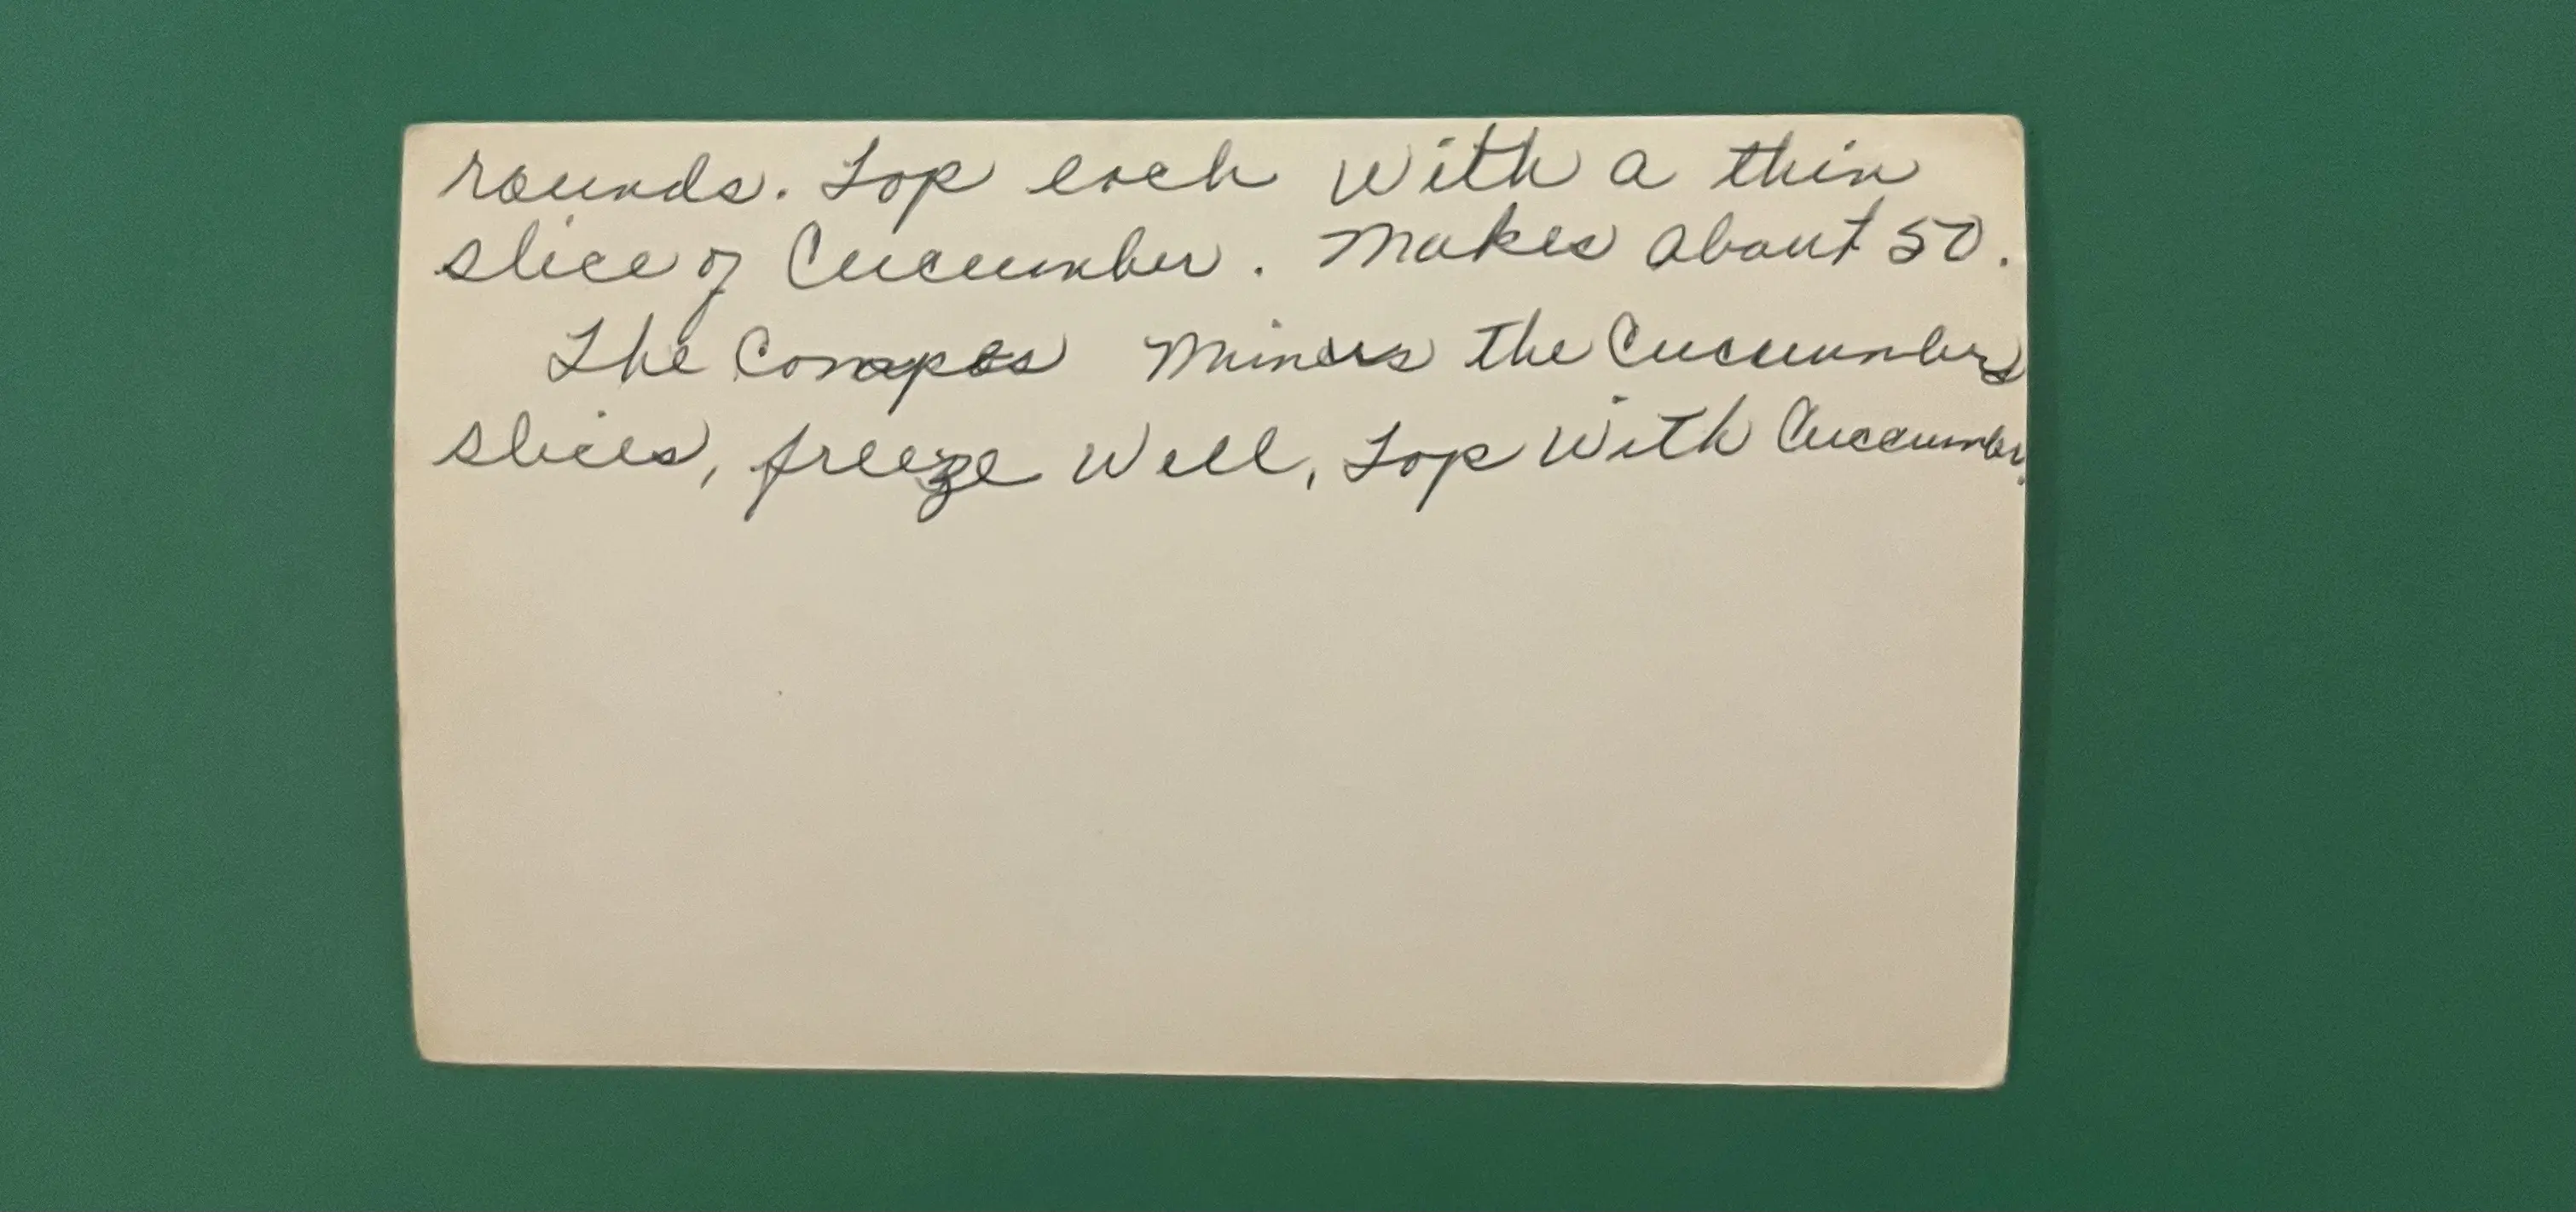 rounds. Top each with a thin
slice of Cucumber. Makes about 50.
The Canapes minus the Cucumber
slices, freeze well, Top with Cucumber.